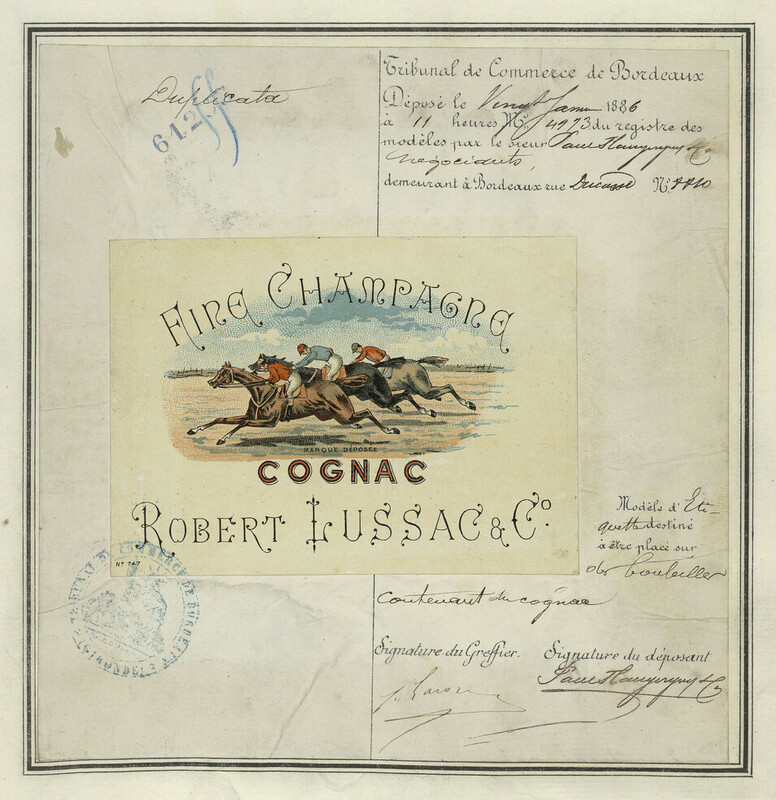 Duplicata
612
Tribunal de Commerce de Bordeaux
Déposé le Vingt 1886
à 11 heures M. N° 4973 du registre des
modèles par le sieur Paul & Co
négociants,
demeurant à Bordeaux rue Ducasse N°
FINE CHAMPAGNE
MARQUE DÉPOSÉE
COGNAC
ROBERT LUSSAC & Co.
No 747
Modèle d'Éti-
quette destiné
à être placé sur
des bouteilles
contenant du cognac
TRIBUNAL DE COMMERCE DE BORDEAUX
(GIRONDE)
Signature du Greffier.
Signature du déposant
Paul & Co